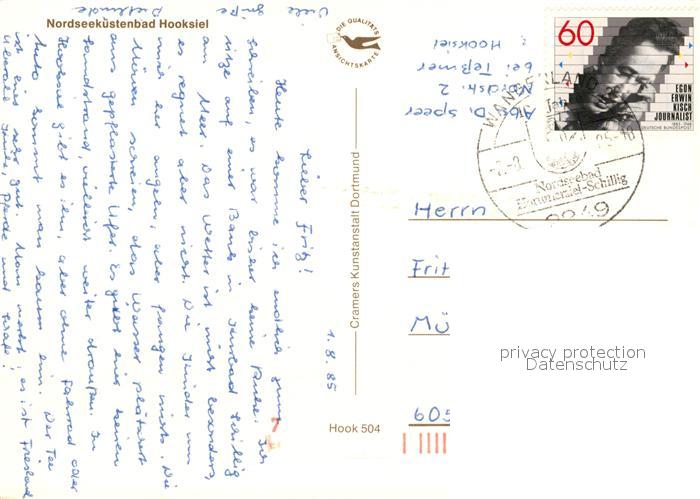 Nordseeküstenbad Hooksiel
DIE QUALITÄTS
ANSICHTSKARTE
Cramers Kunstanstalt Dortmund
Hook 504
1.8.85
Lieber Fritz!
Heute komme ich endlich zum
Schreiben, es war bisher keine Ruhe. Ich
sitze auf einer Bank in Schillig
am Meer. Das Wetter ist nicht besonders,
es regnet aber nicht. Die Kinder um
mich her angeln, aber fangen nichts. Die
Möwen schreien, das Wasser plätschert
ans gepflasterte Ufer. Es gibt hier keinen
Sandstrand, vielleicht weiter draußen. In
Hooksiel gibt es ihn, aber ohne Fahrrad oder
Auto kommt man kaum hin. Der Tee
ist hier sehr gut. Man merkt, es ist Friesland
überall Rinder, Pferde und Schafe!
Viele Grüße
Dietlinde
Abs. D. Speer
Nordstr. 2
bei Teßmer
Hooksiel
60
EGON
ERWIN
KISCH
JOURNALIST
1885-1948
DEUTSCHE BUNDESPOST
WANGERLAND
Nordseebad
Horumersiel-Schillig
2949
Herrn
Frit
Mü
605
privacy protection
Datenschutz